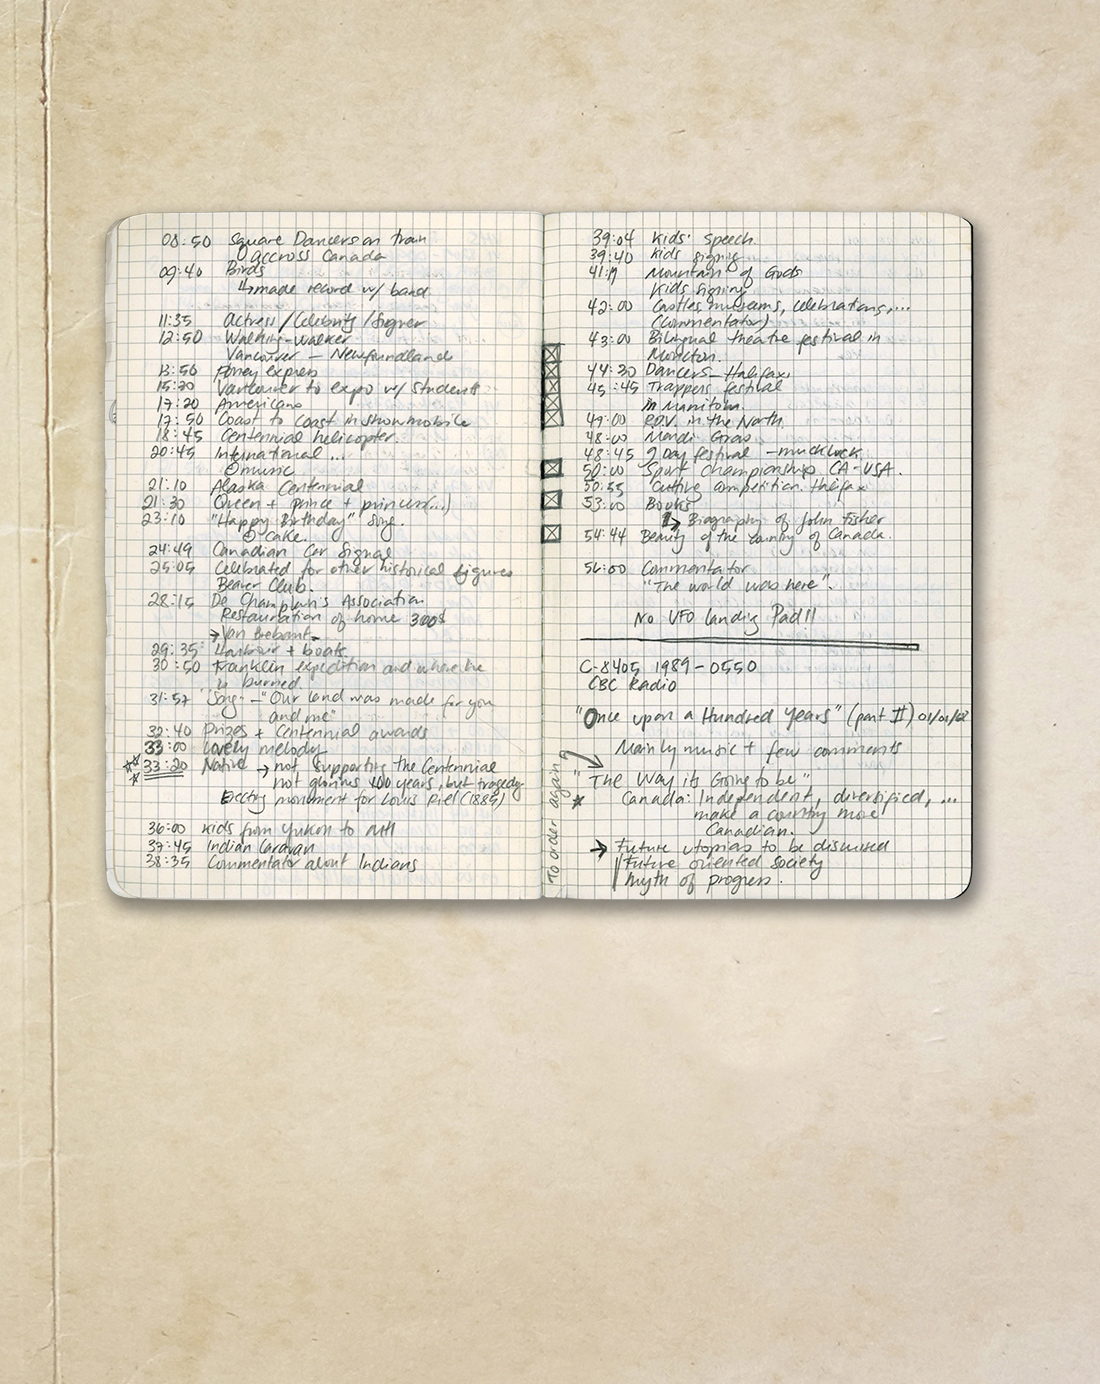 08:50 Square Dancers on train
accross Canada
09:40 Birds
made record w/ band
11:35 Actress / Celebrity / Signer
12:50 Walking-walker
Vancouver — Newfoundland
13:50 Poney express
15:20 Vancouver to expo w/ students
17:20 Americans
17:50 Coast to Coast in showmobile
18:45 Centennial helicopter.
20:45 International ...
music
21:10 Alaska Centennial
21:30 Queen + prince + princess...)
23:10 "Happy Birthday" song.
cake.
24:49 Canadian Car Signal
25:05 Celebrated for other historical figures
Beaver Club.
28:15 De Champlain's Association
Restauration of home 300$
→
29:35 Harbour + boats
30:50 Franklin expedition and where he
is burned.
31:57 Song — "Our land was made for you
and me"
32:40 Prizes + Centennial awards
33:00 lovely melody
33:20 Native → not supporting the Centennial
not glorius 100 years, but tragedy
Erecting monument for Louis Riel (1885)
36:00 kids from Yukon to
37:45 Indian Caravan
38:35 Commentator about Indians
39:04 Kids' speech
39:40 kids signing
41:19 Mountain of Gods
Kids signing
42:00 Castles, museums, celebrations,...
(Commentator)
43:00 Bilingual theatre festival in
Moncton.
44:30 Dancers — Halifax
45:45 Trappers festival
in Manitoba.
49:00 in the North.
48:00 Mardi Gras
48:45 9 Day festival — muckluck
50:00 Sport championship CA-USA.
50:55 Cutting competition. Halifax
53:00 Books
→ Biography of John Fisher
54:44 Beauty of the country of Canada.
56:00 Commentator
"The world was here".
No UFO landing Pad!!
C-8405 1989-0550
CBC Radio
"Once upon a Hundred Years" (part II) 01/01/
Mainly music + few comments
"The Way it's Going to be"
Canada: Independent, diversified, ...
make a country more
Canadian.
→ Future utopias to be discussed
Future oriented society
Myth of progress.
To order again?